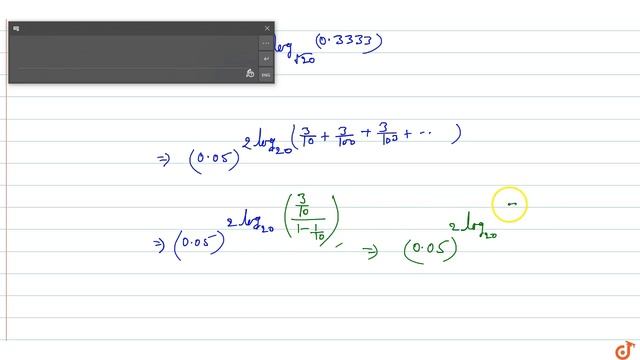 log_√20 (0.3333)
ENG
⇒ (0.05)^2 log_20 (3/10 + 3/100 + 3/103 + ··· )
⇒ (0.05)^2 log_20 ((3/10)/(1 - 1/10)) ⇒ (0.05)^2 log_20